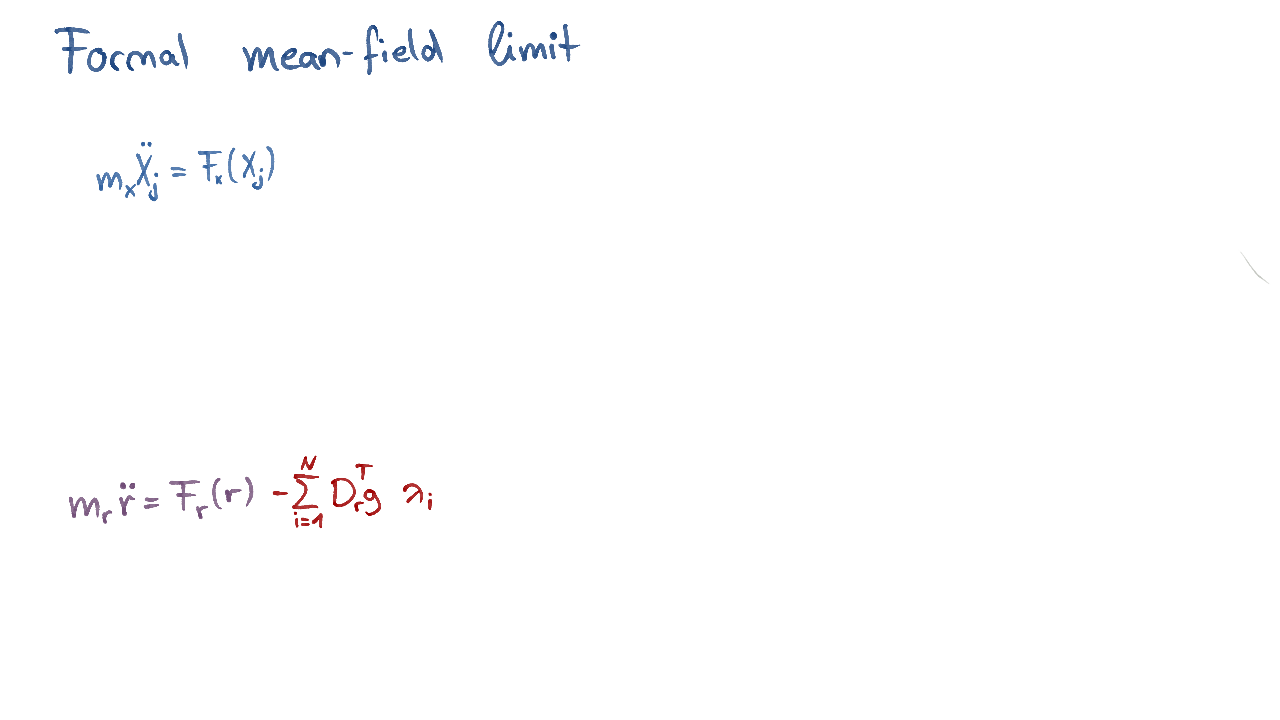 Formal mean-field limit
m_x Ẍ_j = F_x(X_j)
m_r r̈ = F_r(r) - ∑_{i=1}^{N} D_r^T g λ_i